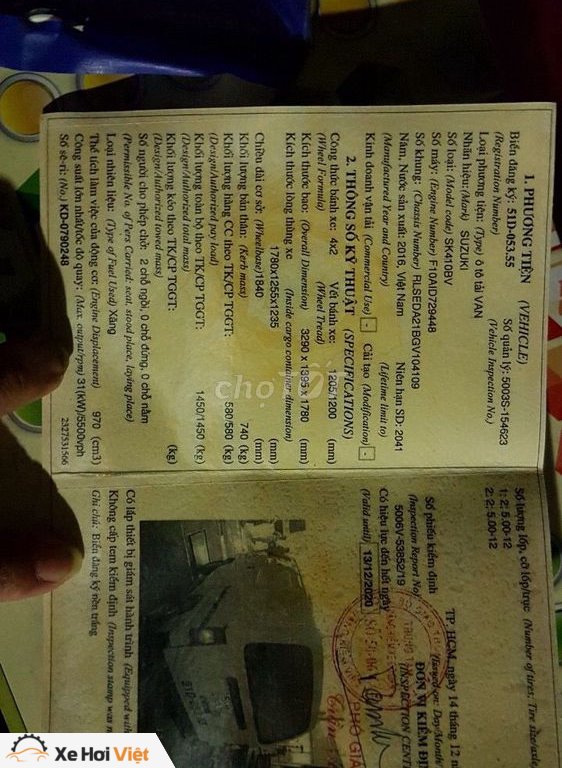 1. PHƯƠNG TIỆN (VEHICLE)
Biển đăng ký: 51D-053.55 Số quản lý: 5003S-154623
(Registration Number) (Vehicle Inspection No.)
Loại phương tiện: (Type) ô tô tải VAN
Nhãn hiệu: (Mark) SUZUKI
Số loại: (Model code) SK410BV
Số máy: (Engine Number) F10AID729448
Số khung: (Chassis Number) RLSEDA21BGV104109
Năm, Nước sản xuất: 2016, Việt Nam Niên hạn SD: 2041
(Manufactured Year and Country) (Lifetime limit to)
Kinh doanh vận tải (Commercial Use) - Cải tạo (Modification) -
2. THÔNG SỐ KỸ THUẬT (SPECIFICATIONS)
Công thức bánh xe: 4x2 Vết bánh xe: 1205/1200 (mm)
(Wheel Formula) (Wheel Tread)
Kích thước bao: (Overall Dimension) 3290 x 1395 x 1780 (mm)
Kích thước lòng thùng xe (Inside cargo container dimension)
1780x1265x1235 (mm)
Chiều dài cơ sở: (Wheelbase) 1840 (mm)
Khối lượng bản thân: (Kerb mass) 740 (kg)
Khối lượng hàng CC theo TK/CP TGGT: 580/580 (kg)
(Design/Authorized pay load)
Khối lượng toàn bộ theo TK/CP TGGT: 1450/1450 (kg)
(Design/Authorized total mass)
Khối lượng kéo theo TK/CP TGGT: (kg)
(Design/Authorized towed mass)
Số người cho phép chở: 2 chỗ ngồi, 0 chỗ đứng, 0 chỗ nằm
(Permissible No. of Pers Carried: seat, stood place, laying place)
Loại nhiên liệu: (Type of Fuel Used) Xăng
Thể tích làm việc của động cơ: (Engine Displacement) 970 (cm3)
Công suất lớn nhất/tốc độ quay: (Max. output/rpm) 31(KW)/5500vph
Số sê-ri: (No.) KD-0790248 2327531566
Số lượng lốp, cỡ lốp/trục (Number of tires; Tire size/axle
1: 2; 5.00-12
2: 2; 5.00-12
Số phiếu kiểm định
(Inspection Report No)
5006V-53852/19
Có hiệu lực đến hết ngày
(Valid until) 13/12/2020
TP. HCM, ngày 14 tháng 12 n
(Issued on: Day/Month/
ĐƠN VỊ KIỂM ĐỊ
INSPECTION CENT
PHÓ GIÁ
Có lắp thiết bị giám sát hành trình (Equipped with
Không cấp tem kiểm định (Inspection stamp was n
Ghi chú: Biển đăng ký nền trắng
chợ TỐT
Xe Hơi Việt